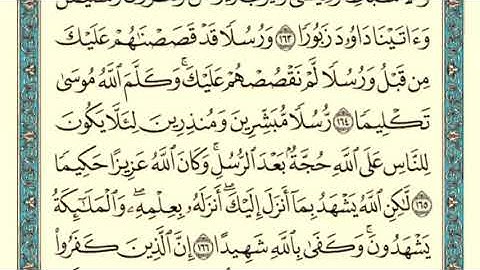 وَءَاتَيۡنَا دَاوُۥدَ زَبُورٗا ١٦٣ وَرُسُلٗا قَدۡ قَصَصۡنَٰهُمۡ عَلَيۡكَ
مِن قَبۡلُ وَرُسُلٗا لَّمۡ نَقۡصُصۡهُمۡ عَلَيۡكَۚ وَكَلَّمَ ٱللَّهُ مُوسَىٰ
تَكۡلِيمٗا ١٦٤ رُّسُلٗا مُّبَشِّرِينَ وَمُنذِرِينَ لِئَلَّا يَكُونَ
لِلنَّاسِ عَلَى ٱللَّهِ حُجَّةُۢ بَعۡدَ ٱلرُّسُلِۚ وَكَانَ ٱللَّهُ عَزِيزًا حَكِيمٗا
١٦٥ لَّٰكِنِ ٱللَّهُ يَشۡهَدُ بِمَآ أَنزَلَ إِلَيۡكَۖ أَنزَلَهُۥ بِعِلۡمِهِۦۖ وَٱلۡمَلَٰٓئِكَةُ
يَشۡهَدُونَۚ وَكَفَىٰ بِٱللَّهِ شَهِيدًا ١٦٦ إِنَّ ٱلَّذِينَ كَفَرُواْ